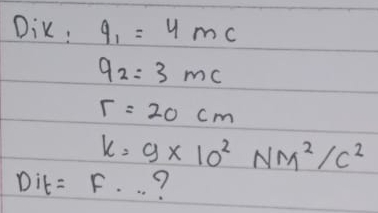 Dik: q₁ = 4 mc
q₂ = 3 mc
r = 20 cm
k = 9 × 10² NM²/C²
Dit = F...?